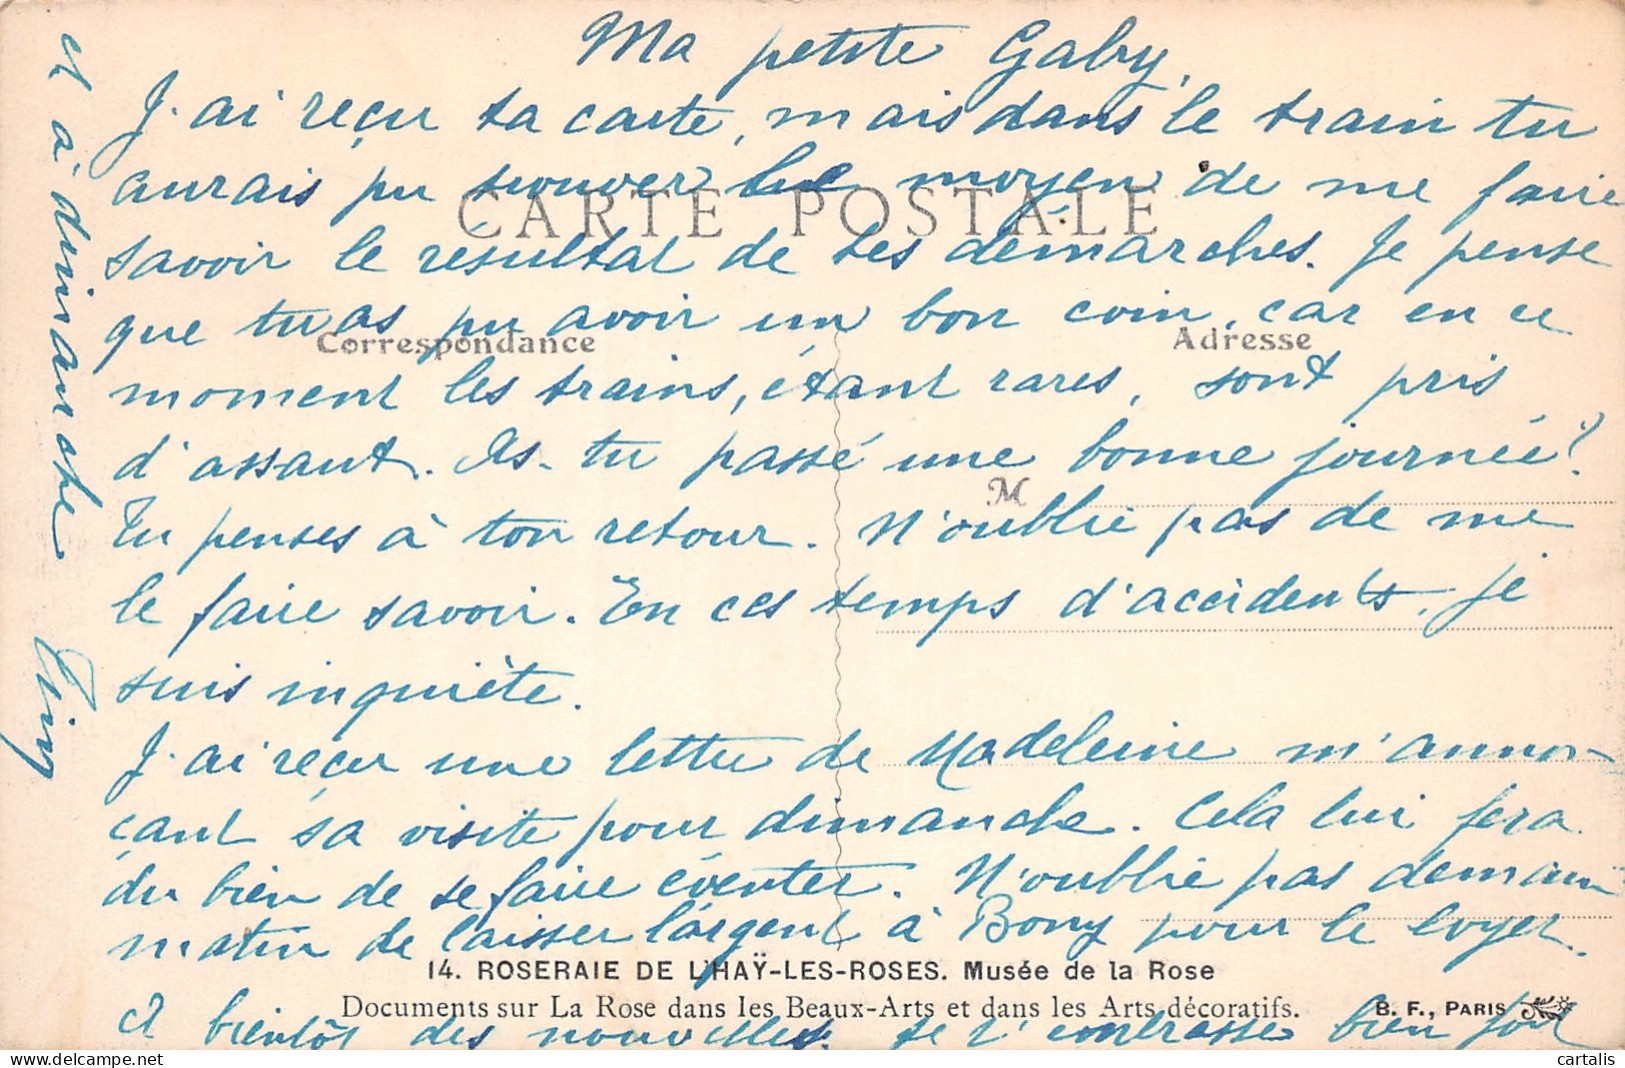 Ma petite Gaby,
J'ai reçu ta carte, mais dans le train tu
aurais pu trouver le moyen de me faire
savoir le résultat de tes démarches. Je pense
que tu as pu avoir un bon coin, car en ce
moment les trains, étant rares, sont pris
d'assaut. As-tu passé une bonne journée?
Tu penses à ton retour. N'oublie pas de me
le faire savoir. En ces temps d'accidents, je
suis inquiète.
J'ai reçu une lettre de Madeleine m'annon-
çant sa visite pour dimanche. Cela lui fera
du bien de se faire éventer. N'oublie pas demain
matin de laisser l'argent à Bony pour le loyer.
et bientôt des nouvelles. Je t'embrasse bien fort
et à dimanche
CARTE POSTALE
Correspondance
Adresse
M
14. ROSERAIE DE L'HAŸ-LES-ROSES. Musée de la Rose
Documents sur La Rose dans les Beaux-Arts et dans les Arts décoratifs.
B. F., PARIS
cartalis